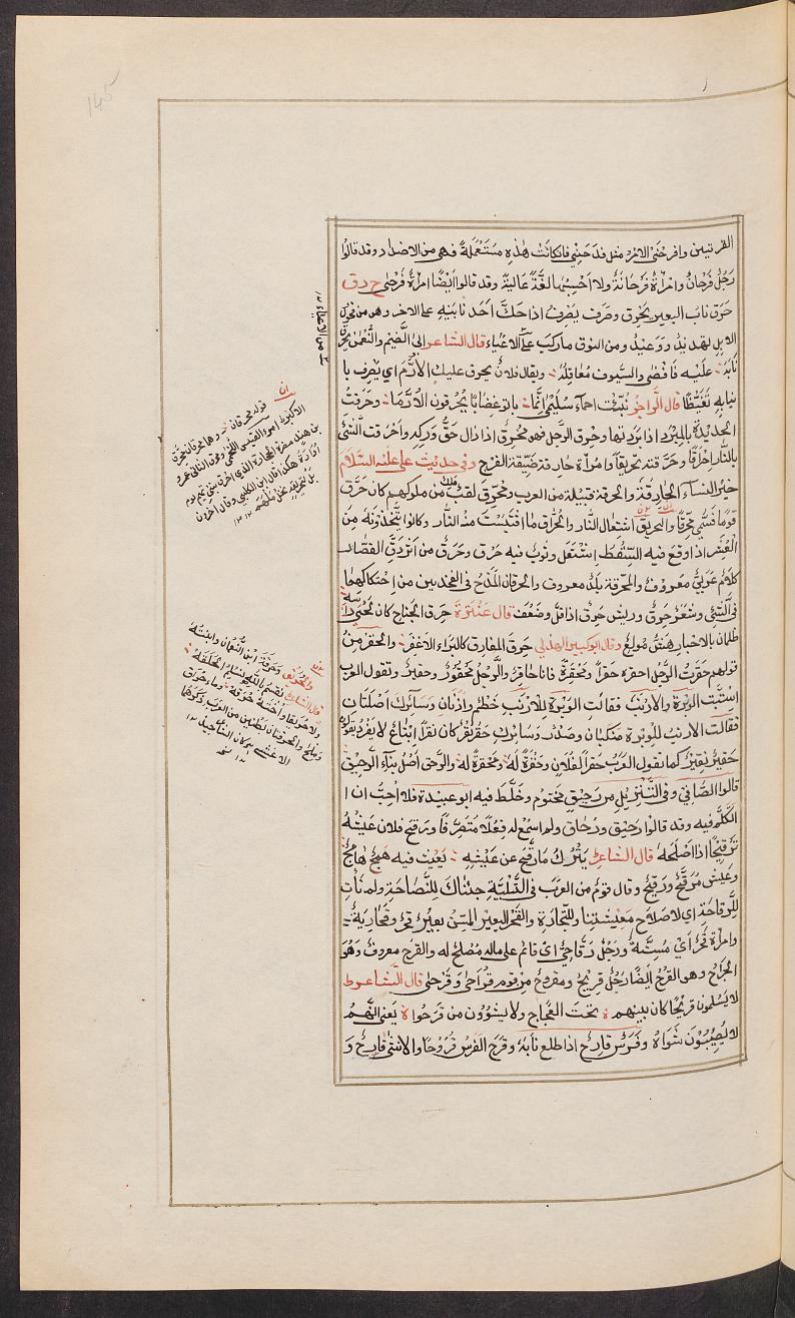 القرنين وافرحني الامر مثل فدحني فان كانت هذه مستعملة فهي من الاضداد وقد قالوا
رجل فرحان وامرأة فرحانة ولا احسبها لغة عالية وقد قالوا ايضا امرأة فرحى ح ر ق
حرق ناب البعير يحرق وصرف يصرف اذا حك احد نابيه على الاخر وهو من فحول
الابل تهديد ووعيد ومن النوق من الاعياء قال الشاعر الى الضيم والنعمن يحرق
نابه عليه فافضى والسيوف معاقله ويقال فلان يحرق عليك الأرم اي يصرف با
نيابه تغيظا قال الراجز نبئت احماء سليمى انما باتوا غضابا يحرقون الأرما وحرقت
الحديدة بالمبرد اذا بردتها وحرق الرجل فهو محروق اذا زال حق وركه واحرقت الشيء
بالنار احراقا وحرقته تحريقا وامرأة حارقة ضيقة الفرج وفي حديث علي عليه السلام
خير النساء الحارقة والحرقة قبيلة من العرب ومحرق لقب ملك من ملوكهم كان حرق
قوما فسمي محرقا والحريق اشتعال النار والحراق ما اقتبست منه النار وكانوا يتخذونه من
العشر اذا وقع فيه السقط اشتعل وثوب فيه حرق وحرق من اثر دق القصار
كلام عربي معروف والمحرقة بلد معروف والحرقان المذح في الفخذين من احتكاكهما
في المشي وشعر حرق وريش حرق اذا قل وضعف قال عنترة حرق الجناح كأن لحيي رأسه
جلمان بالاخبار هش مولع وقال ابو كبير الهذلي حرق المفارق كالبراء الاعفر والحقر من
قولهم حقرت الرجل احقره حقرا ومحقرة فانا حاقر والرجل محقور وحقير وتقول العرب
استبت الوبرة والارنب فقالت الوبرة للارنب خطم واذنان وسائرك اصلتان
فقالت الارنب للوبرة منكبان وصدر وسائرك حقر نقر كان نقرا اتباع لا يفرد يقولون
حقير نقير كما تقول العرب حقرا لفلان وحقرة له ومحقرة له والرحق اصل بناء الرحيق
قالوا الصافي وفي التنزيل من رحيق مختوم وخلط فيه ابو عبيدة فلا احب ان ا
اتكلم فيه وقد قالوا رحيق ورحاق ولم اسمع له فعلا متصرفا ورقح فلان عيشه
ترقيحا اذا اصلحه قال الشاعر يترك ما رقح من عيشه يعيث فيه همج هامج
وعيش مرقح ورقيح وقال قوم من العرب في التلبية جئناك للنصاحة ولم نأت
للرقاحة اي لاصلاح معيشتنا وللتجارة والقحر البعير المسن بعير قحر وقحارية
وامرأة قحرة اي مسنة ورجل رقاحي اي قائم على ماله مصلح له والقرح معروف وهو
الجراح وهو القرح ايضا رجل قريح ومقروح من قوم قراحى وقرحى قال الشاعر ط
لا يسلمون قريحا كان بينهم تحت العجاج ولا يشوون من قرحوا يعني انهم
لا يصيبون شواه وفرس قارح اذا طلع نابه وقرح الفرس قروحا والانثى قارح و
من الاعياء
قوله محرقان وهما محرقان محرق
الاكبر امرؤ القيس اللخمي ومحرق الثاني عمرو
بن هند مضرط الحجارة الذي احرق بني تميم يوم
اوارة هكذا قال ابن الكلبي وقال آخرون
بل لتحريقه نخل ملهم
والحرقق وحرقة ابن النعمان وابنته
قال الشاعر نقسم بالله نسلم الحلقة
ولا حريقا واخته حرقة وماء حراق
وملح والحرقتان بطنين من العرب ذكرهما
الاعشى
145